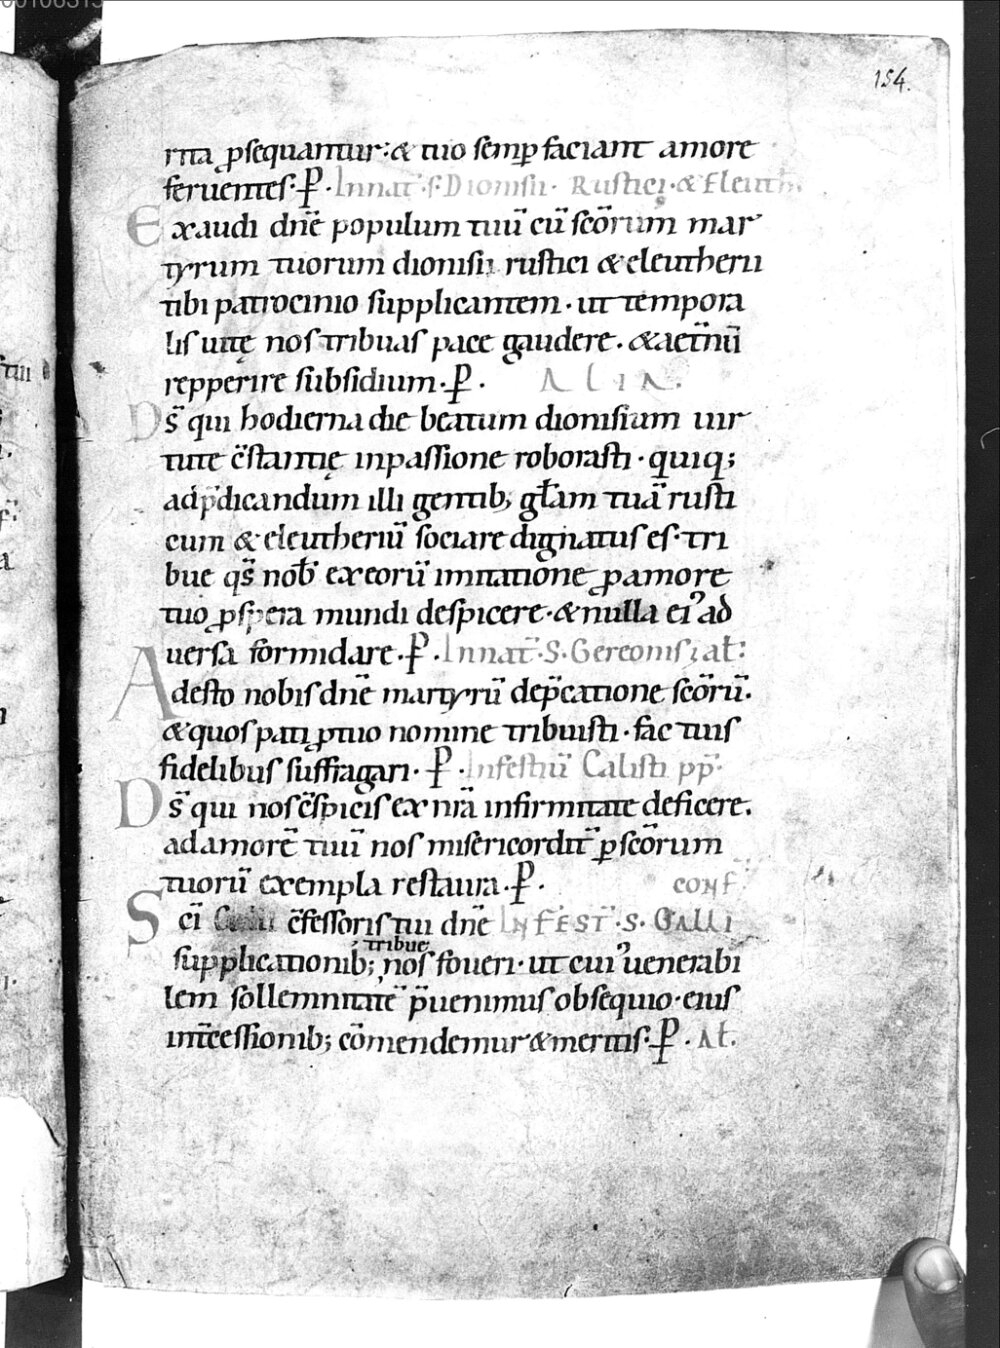 154.
rita ꝓsequantur: & tuo semꝑ faciant amore
feruentes· P̲· In nat̄· S· Dionisii· Rustici· & Eleuth
Exaudi dn̄e populum tuū cū scōrum mar
tyrum tuorum dionisii rustici & eleutherii
tibi patrocinio supplicantem· ut tempora
lis uitę nos tribuas pace gaudere· & aet̄nū
repperire subsidium· P̲· ALIA·
Ds̄ qui hodierna die beatum dionisium uir
tute c̄stantię in passione roborasti· quiq;
ad p̄dicandum illi gentib; gl̄am tuā rusti
cum & eleutheriū sociare dignatus es· tri
bue qs̄ nob̄ ex eorū imitatione ꝓ amore
tuo ꝓspera mundi despicere· & nulla ei᾽ ad
uersa formidare· P̲· In nat̄· S· Gereonis;
Adesto nobis dn̄e martyrū dep̄catione scōrū·
& quos pati ꝓ tuo nomine tribuisti· fac tuis
fidelibus suffragari· P̲· In festiū Calisti pp̄·
Ds̄ qui nos c̄spicis ex nr̄a infirmitate deficere·
ad amorē tuū nos misericordit̄ ꝑ scōrum
tuorū exempla restaura· P̲· CONF·
Sc̄i c̄fessoris tui dn̄e IN FEST̄· S· GALLI
tribue
supplicationib; nos foueri· ut cui᾽ uenerabi
lem sollemnitatē p̄uenimus obsequio· eius
int̄cessionib; cōmendemur & meritis· P̲· Al̄·